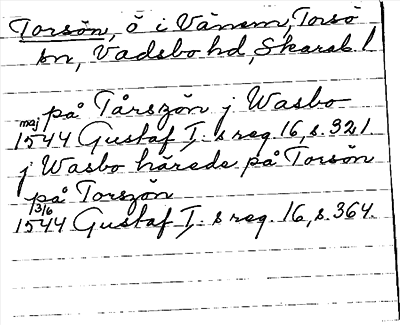 Torsön, ö i Vänern, Torsö
sn, Vadsbo hd, Skarab. l
på Tårszön j Wasbo
maj
1544 Gustaf I:s reg. 16, s. 321.
j Wasbo härede på Torsön
på Torszön
13/6
1544 Gustaf I:s reg. 16, s. 364.